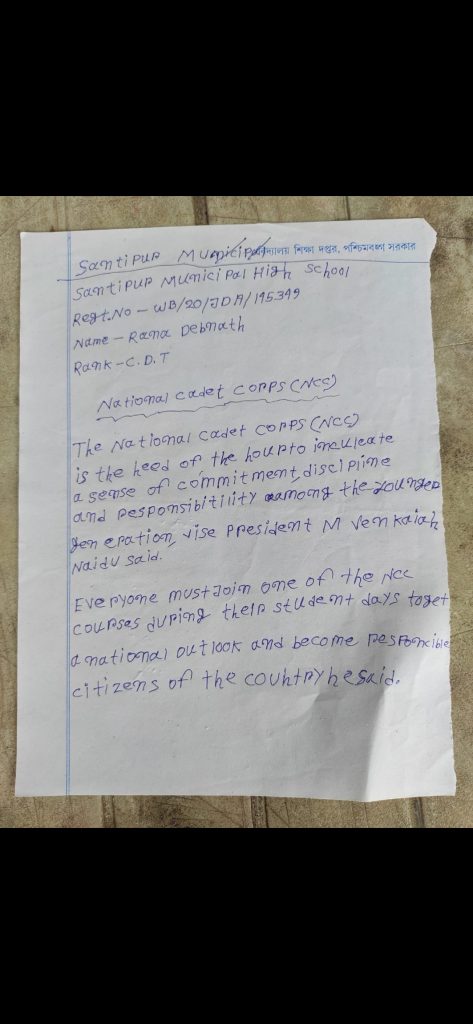 বিদ্যালয় শিক্ষা দপ্তর, পশ্চিমবঙ্গ সরকার
Santipur Municipal
Santipur Municipal High School
Regt.No - WB/20/JDA/195.349
Name - Rana Debnath
Rank - C.D.T
National cadet corps (NCC)
The National cadet corps (NCC)
is the heed of the hourto inculcate
a sense of commitment, disciplime
and responsibitility among the younger
gen eration, vise president M Venkaiah
Naidu said.
Everyone must Join one of the NCC
courses during their student days toget
a national outlook and become responcible
citizens of the country he said.